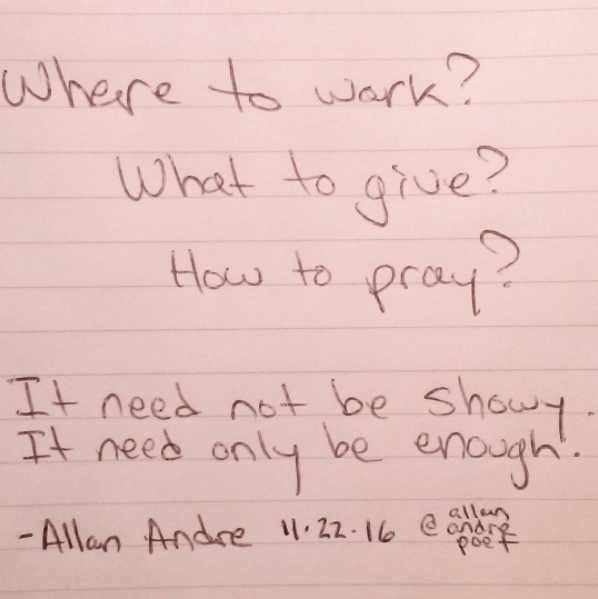 Where to work?
What to give?
How to pray?
It need not be showy.
It need only be enough.
-Allan Andre 11.22.16 @allan
andre
poet